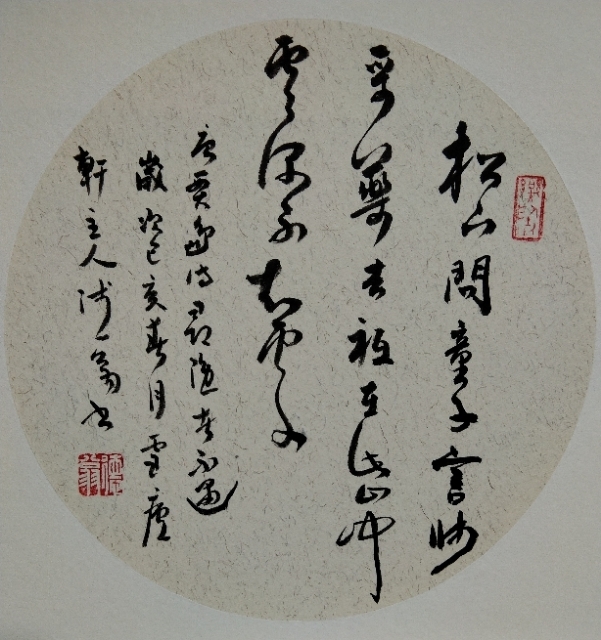 松下問童子言師
采藥去祇在此山中
雲深不知處
唐賈島詩尋隱者不遇
歲次己亥春月廬
軒主人翁书